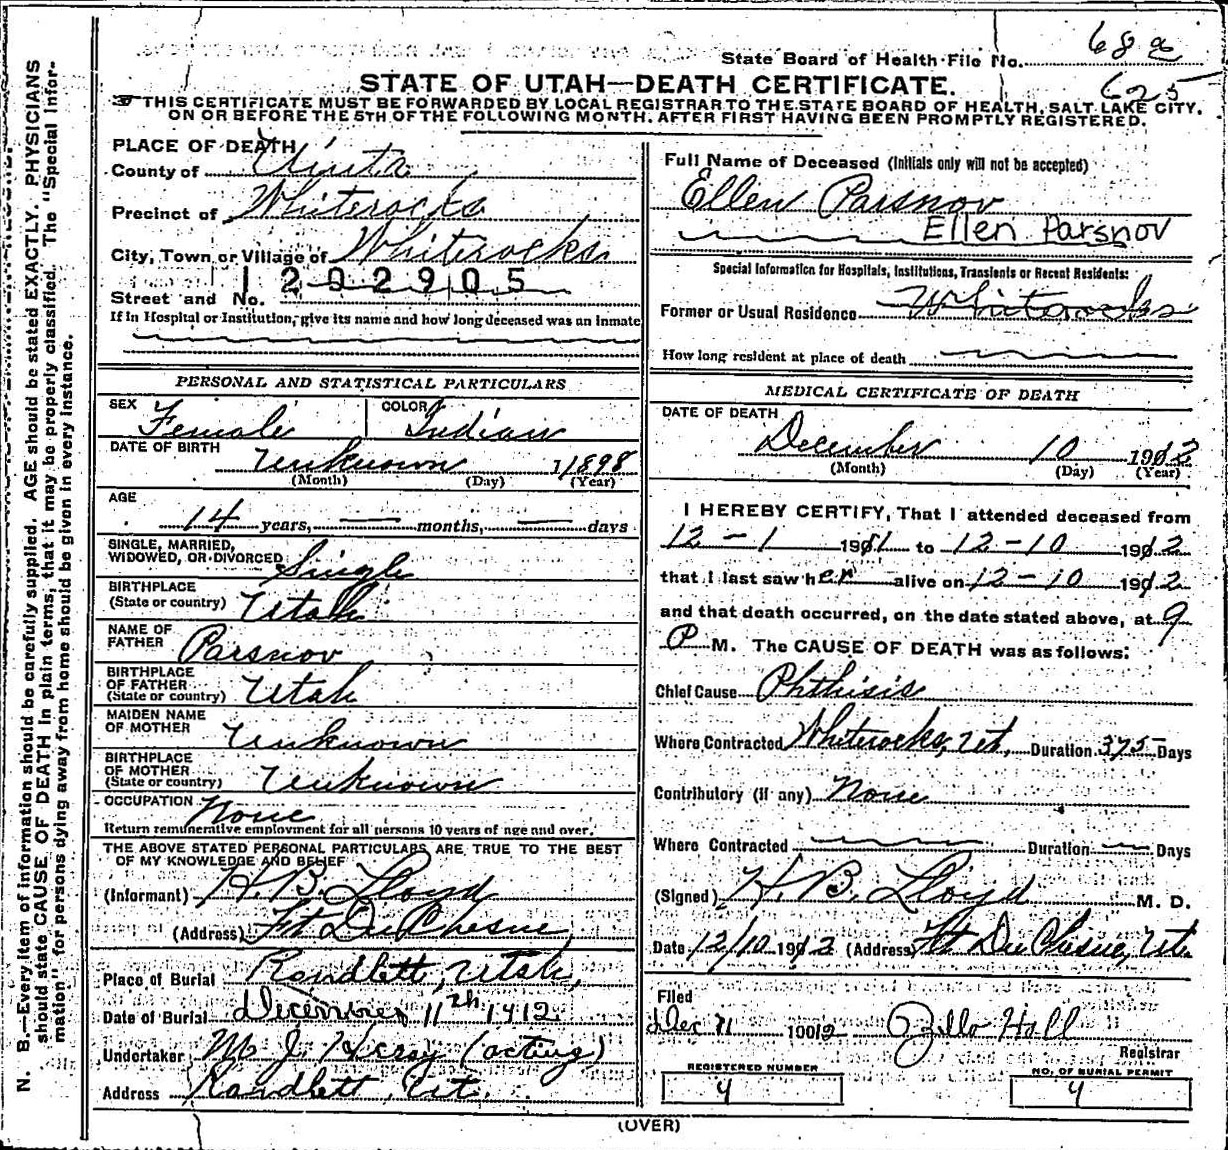 State Board of Health-File No. 68a
STATE OF UTAH—DEATH CERTIFICATE.
625
THIS CERTIFICATE MUST BE FORWARDED BY LOCAL REGISTRAR TO THE STATE BOARD OF HEALTH, SALT LAKE CITY,
ON OR BEFORE THE 5TH OF THE FOLLOWING MONTH. AFTER FIRST HAVING BEEN PROMPTLY REGISTERED.
N. B.—Every item of information should be carefully supplied. AGE should be stated EXACTLY. PHYSICIANS
should state CAUSE OF DEATH in plain terms, that it may be properly classified. The "Special Infor-
mation" for persons dying away from home should be given in every instance.
PLACE OF DEATH
County of Uinta
Precinct of Whiterocks
City, Town or Village of Whiterocks
1202905
Street and No.
If in Hospital or Institution, give its name and how long deceased was an inmate
PERSONAL AND STATISTICAL PARTICULARS
SEX Female COLOR Indian
DATE OF BIRTH Unknown 1898
(Month) (Day) (Year)
AGE
14 years, — months, — days
SINGLE, MARRIED,
WIDOWED, OR DIVORCED Single
BIRTHPLACE
(State or country) Utah
NAME OF
FATHER Parsnov
BIRTHPLACE
OF FATHER
(State or country) Utah
MAIDEN NAME
OF MOTHER Unknown
BIRTHPLACE
OF MOTHER
(State or country) Unknown
OCCUPATION None
Return remunerative employment for all persons 10 years of age and over.
THE ABOVE STATED PERSONAL PARTICULARS ARE TRUE TO THE BEST
OF MY KNOWLEDGE AND BELIEF
(Informant) H. B. Lloyd
(Address) Ft Du Chesne
Place of Burial Randlett, Utah,
Date of Burial December 11th 1912
Undertaker M. J. (acting)
Address Randlett, Ut.
Full Name of Deceased (Initials only will not be accepted)
Ellen Parsnov
Ellen Parsnov
Special Information for Hospitals, Institutions, Transients or Recent Residents:
Former or Usual Residence Whiterocks
How long resident at place of death
MEDICAL CERTIFICATE OF DEATH
DATE OF DEATH
December 10 1912
(Month) (Day) (Year)
I HEREBY CERTIFY, That I attended deceased from
12 - 1 1911 to 12 - 10 1912
that I last saw her alive on 12 - 10 1912
and that death occurred, on the date stated above, at 9
P M. The CAUSE OF DEATH was as follows:
Chief Cause Phthisis
Where Contracted Whiterocks, Ut, Duration 375 Days
Contributory (if any) None
Where Contracted Duration — Days
(Signed) H. B. Lloyd M. D.
Date 12/10 1912 (Address) Ft Du Chesne, Ut.
Filed
Dec 11 1912 Zella Hall
Registrar
REGISTERED NUMBER NO. OF BURIAL PERMIT
4 4
(OVER)